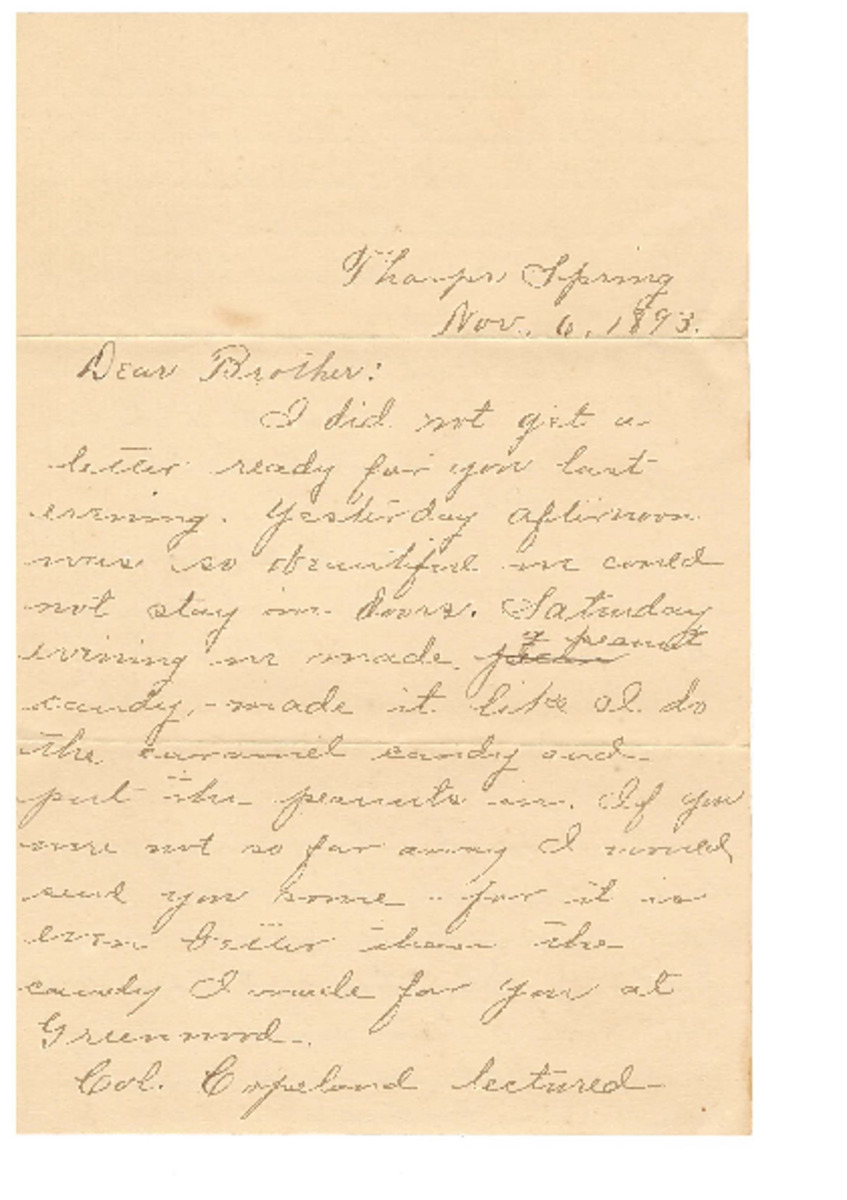 Thorps Spring
Nov. 6, 1893.
Dear Brother:
I did not get a
letter ready for you last
evening. Yesterday afternoon
was so beautiful we could
not stay in doors. Saturday
a peanut
evening we made
candy, - made it like I do
the caramel candy and
put the peanuts in. If you
were not so far away I would
send you some - for it is
even better than the
candy I made for you at
Greenwood.
Col. Copeland lectured